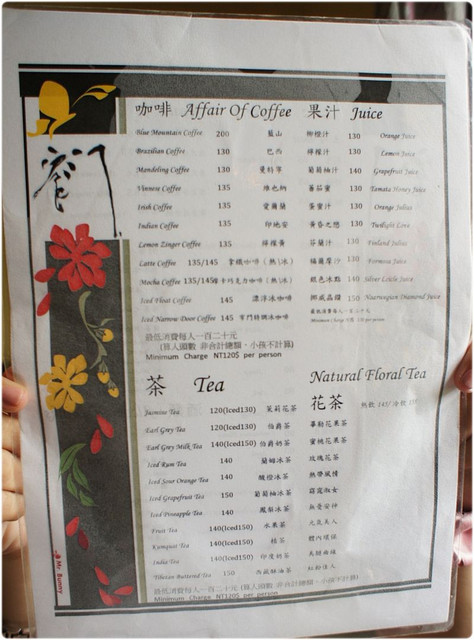 咖啡 Affair Of Coffee
Blue Mountain Coffee 200 藍山
Brazilian Coffee 130 巴西
Mandeling Coffee 130 曼特寧
Viennese Coffee 135 維也納
Irish Coffee 135 愛爾蘭
Indian Coffee 135 印地安
Lemon Zinger Coffee 135 檸檬黃
Latte Coffee 135/145 拿鐵咖啡（熱\冰）
Mocha Coffee 135/145 摩卡巧克力咖啡（熱\冰）
Iced Float Coffee 145 漂浮冰咖啡
Iced Narrow Door Coffee 145 窄門特調冰咖啡
最低消費每人一百二十元
(算人頭數 非合計總額，小孩不計算)
Minimum Charge NT120$ per person
果汁 Juice
柳橙汁 130 Orange Juice
檸檬汁 130 Lemon Juice
葡萄柚汁 140 Grapefruit Juice
蕃茄蜜 130 Tamata Honey Juice
蛋蜜汁 130 Orange Julius
黃昏之戀 130 Twilight Love
芬蘭汁 130 Finland Julius
福爾摩汁 130 Formosa Juice
銀色冰點 140 Silver Little Juice
挪威晶鑽 150 Naorwegian Diamond Juice
最低消費每人一百二十元
Minimum Charge NT120$ per person
茶 Tea
Jasmine Tea 120(Iced130) 茉莉花茶
Earl Grey Tea 120(Iced130) 伯爵茶
Earl Grey Milk Tea 140(Iced150) 伯爵奶茶
Iced Rum Tea 140 蘭姆冰茶
Iced Sour Orange Tea 140 酸橙冰茶
Iced Grapefruit Tea 150 葡萄柚冰茶
Iced Pineapple Tea 140 鳳梨冰茶
Fruit Tea 140(Iced150) 水果茶
Kumquat Tea 140(Iced150) 桔茶
India Tea 140(Iced150) 印度奶茶
Tibetan Buttered Tea 150 西藏酥油茶
最低消費每人一百二十元 (算人頭數 非合計總額，小孩不計算)
Minimum Charge NT120$ per person
Natural Floral Tea
花茶 熱飲 145/冷飲
夢勒花果茶
蜜桃花果茶
玫瑰花茶
熱帶風情
窈窕淑女
無憂安神
元氣美人
體內環保
美顏曲線
紅粉佳人
Mr. Bunny